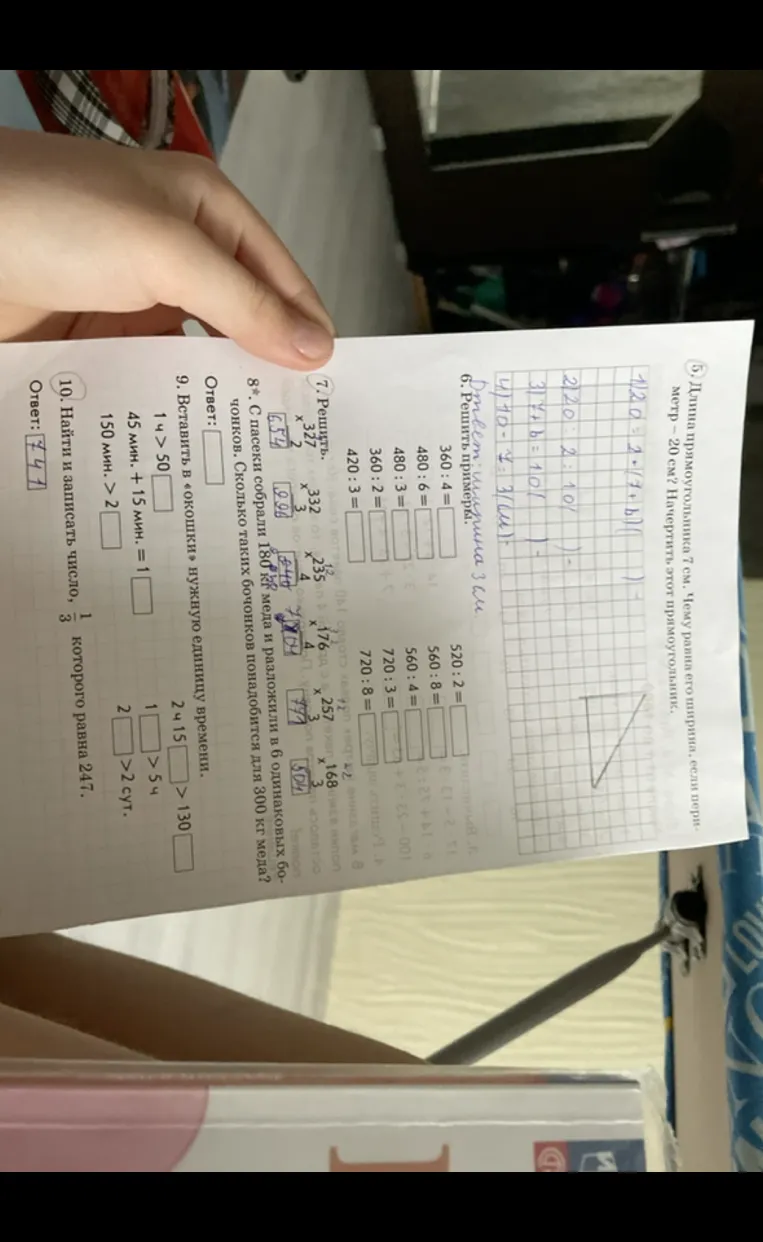 5. Длина прямоугольника 7 см. Чему равна его ширина, если пери-
метр – 20 см? Начертить этот прямоугольник.
1)20 = 2•(7+b)
2)20 : 2 = 10(
3)7+b=10(
4)10-7=3(см)-
Ответ: ширина 3 см
6. Решить примеры.
360 : 4 =
520 : 2 =
480 : 6 =
560 : 8 =
480 : 3 =
560 : 4 =
360 : 2 =
720 : 3 =
420 : 3 =
720 : 8 =
7. Решить.
12
12
327 332 235 176 257 168
× 2 × 3 × 4 × 4 × 3 × 3
654 996 940 704 771 504
8*. С пасеки собрали 180 кг меда и разложили в 6 одинаковых бо-
чонков. Сколько таких бочонков понадобится для 300 кг меда?
Ответ:
9. Вставить в «окошки» нужную единицу времени.
1 ч > 50
2 ч 15 > 130
45 мин. + 15 мин. = 1
1 > 5 ч
150 мин. > 2
2 > 2 сут.
10. Найти и записать число, 1/3 которого равна 247.
Ответ: 741